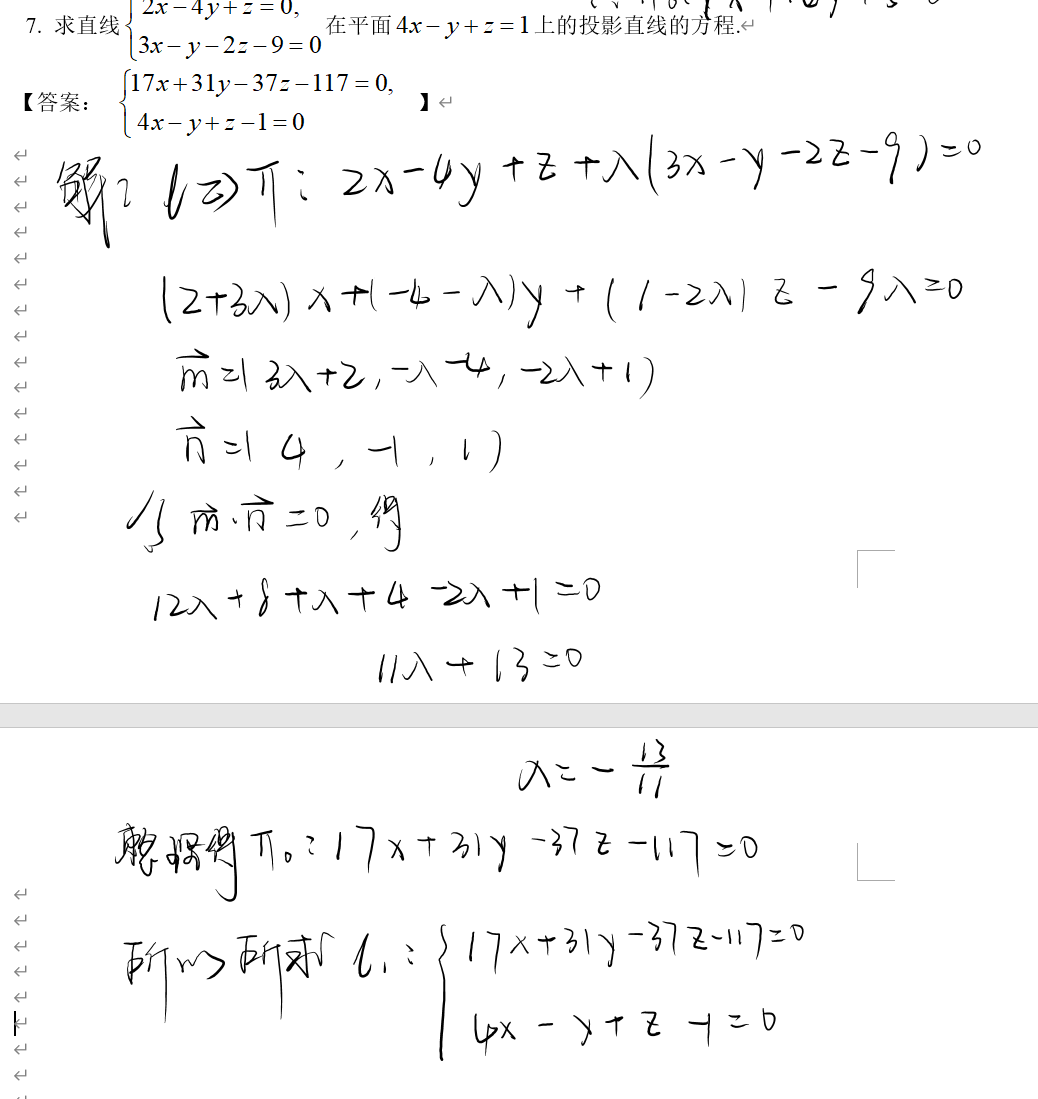 2x－4y＋z＝0,
7. 求直线 在平面4x－y＋z＝1上的投影直线的方程.
3x－y－2z－9＝0
17x＋31y－37z－117＝0,
【答案： 】
4x－y＋z－1＝0
解: l⇒π: 2x-4y+z+λ(3x-y-2z-9)=0
(2+3λ)x+(-4-λ)y+(1-2λ)z-9λ=0
m⃗=(3λ+2,-λ-4,-2λ+1)
n⃗=(4,-1,1)
m⃗·n⃗=0,得
12λ+8+λ+4-2λ+1=0
11λ+13=0
λ=-13/11
整理得π₀: 17x+31y-37z-117=0
所以所求l₁: {17x+31y-37z-117=0
4x-y+z-1=0